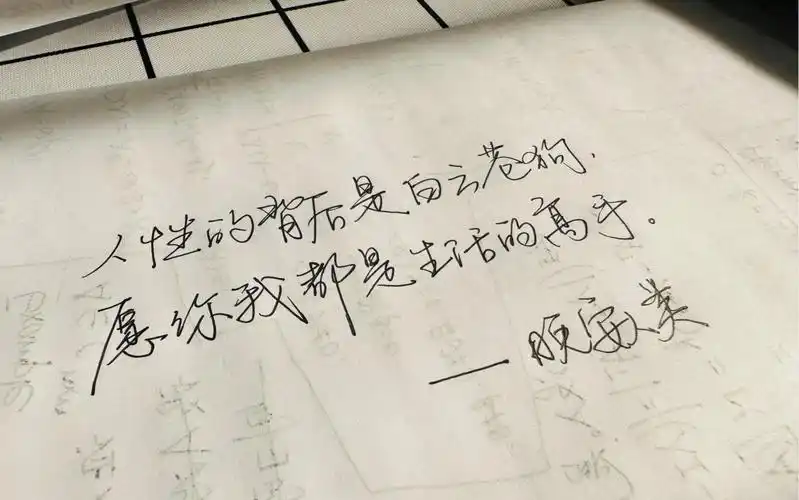 人性的背后是白云苍狗.
愿你我都是生活的高手。
——晚安人类